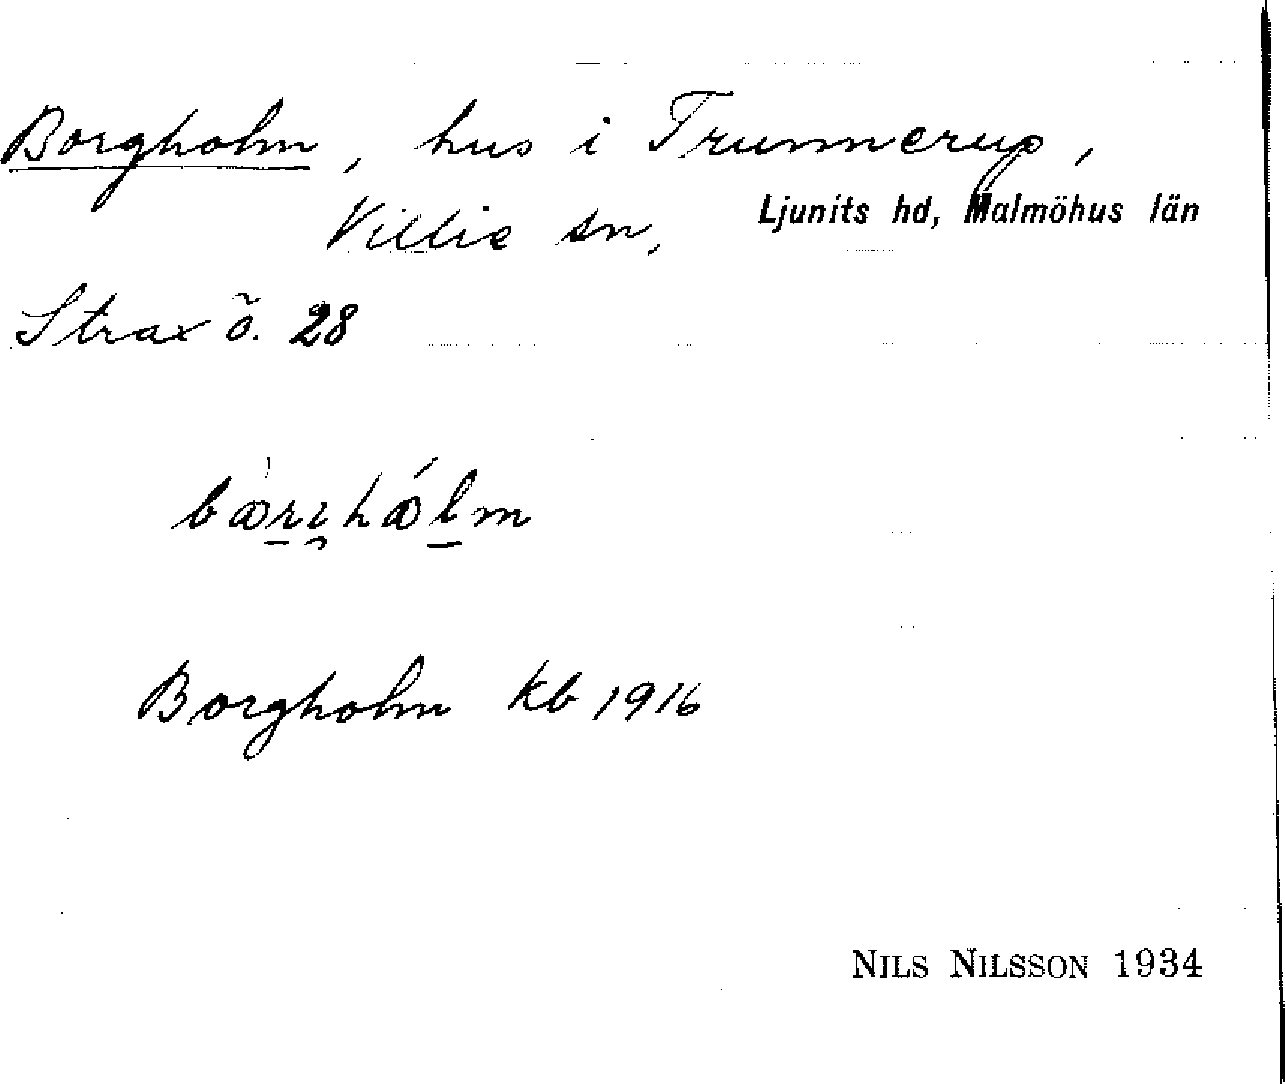 Borgholm, hus i Trunnerup,
Villie sn, Ljunits hd, Malmöhus län
Strax ö. 28
Borgholm kb 1916
NILS NILSSON 1934